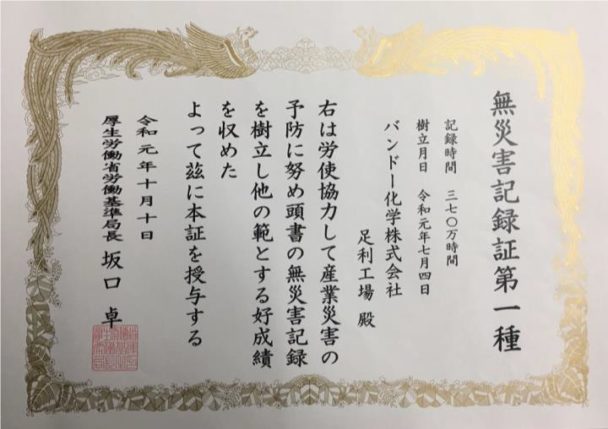 無災害記録証第一種
記録時間　三七〇万時間
樹立月日　令和元年七月四日
バンドー化学株式会社
足利工場　殿
右は労使協力して産業災害の
予防に努め頭書の無災害記録
を樹立し他の範とする好成績
を収めた
よって茲に本証を授与する
令和元年十月十日
厚生労働省労働基準局長　坂口　卓